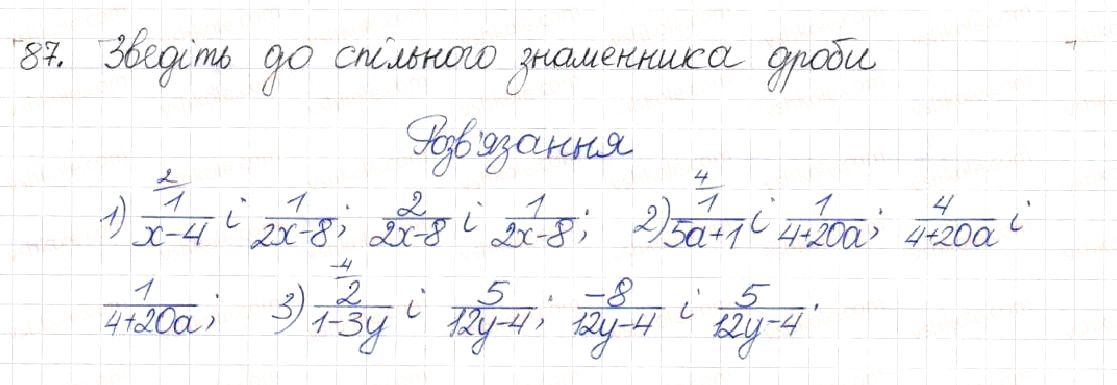 87. Зведіть до спільного знаменника дроби
Розв'язання
1) 2/ 1/(x-4) і 1/(2x-8); 2/(2x-8) і 1/(2x-8); 2) 4/ 1/(5a+1) і 1/(4+20a); 4/(4+20a) і
1/(4+20a); 3) -4/ 2/(1-3y) і 5/(12y-4); -8/(12y-4) і 5/(12y-4).